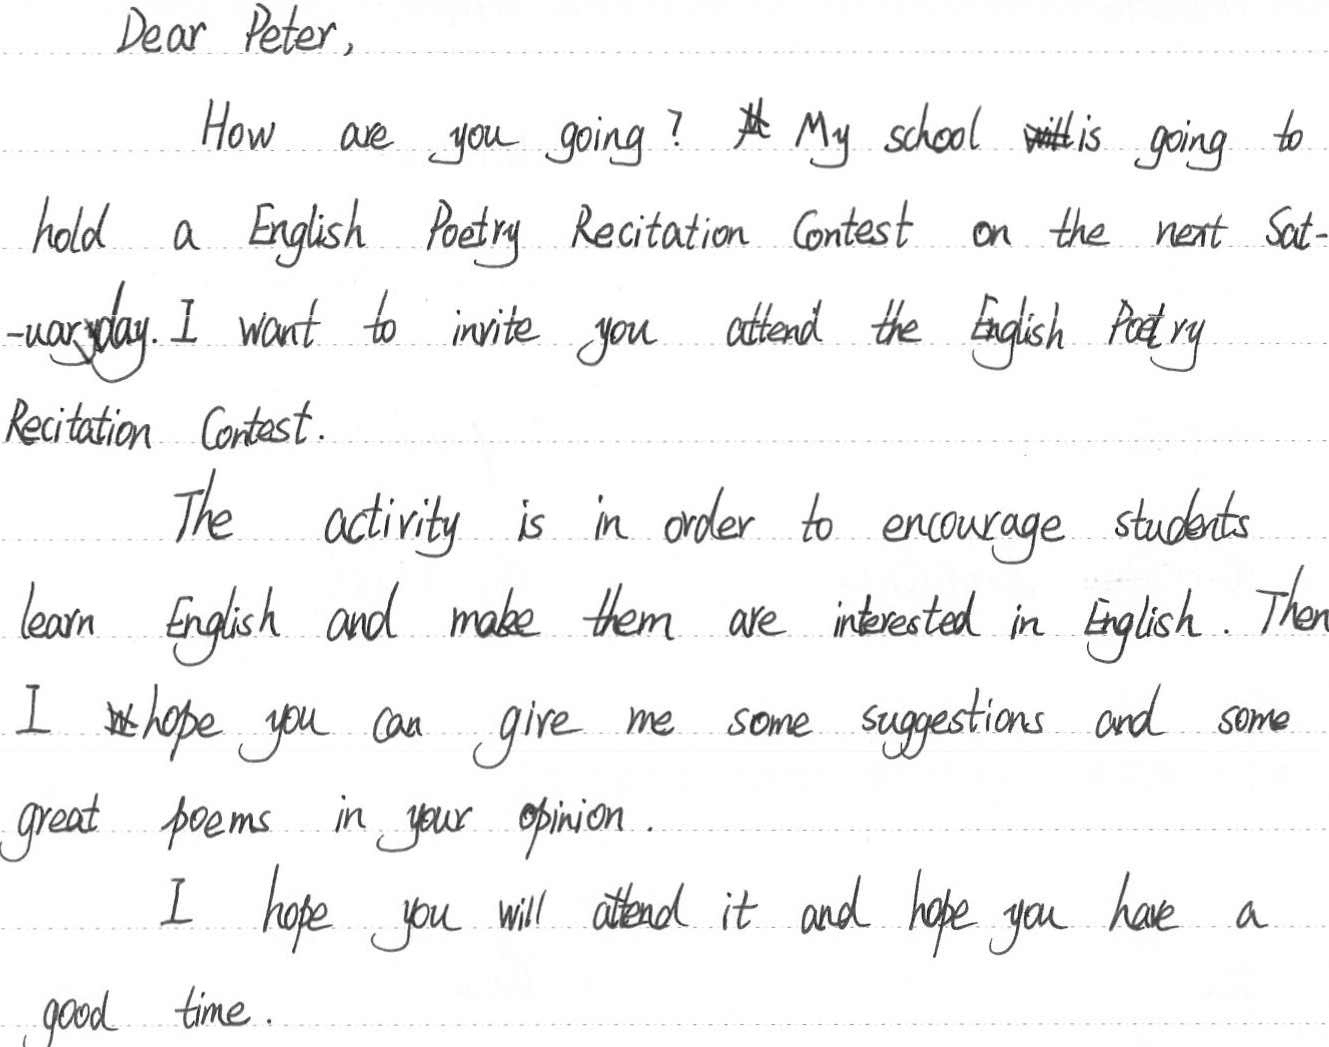 Dear Peter,
How are you going? My school is going to
hold a English Poetry Recitation Contest on the next Sat-
-uaryday. I want to invite you attend the English Poetry
Recitation Contest.
The activity is in order to encourage students
learn English and make them are interested in English. Then
I hope you can give me some suggestions and some
great poems in your opinion.
I hope you will attend it and hope you have a
good time.